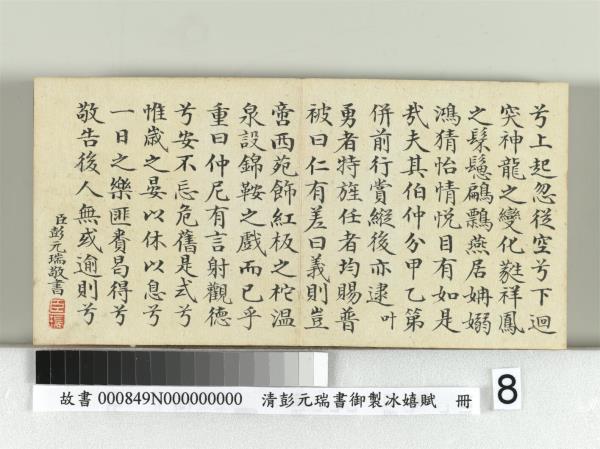 兮上起忽從空兮下迴
突神龍之變化祥鳳
之翩飄燕居姌嫋
鴻猜怡情悅目有如是
哉夫其伯仲分甲乙第
併前行賞縱後亦逮叶
勇者特旌任者均賜普
被曰仁有差曰義則豈
啻西苑飾紅板之柁溫
泉設錦鞍之戲而已乎
重曰仲尼有言射觀德
兮安不忘危舊是式兮
惟歲之晏以休以息兮
一日之樂匪賚曷得兮
敬告後人無或逾則兮
臣彭元瑞敬書
故書 000849N000000000 清彭元瑞書御製冰嬉賦 冊
8